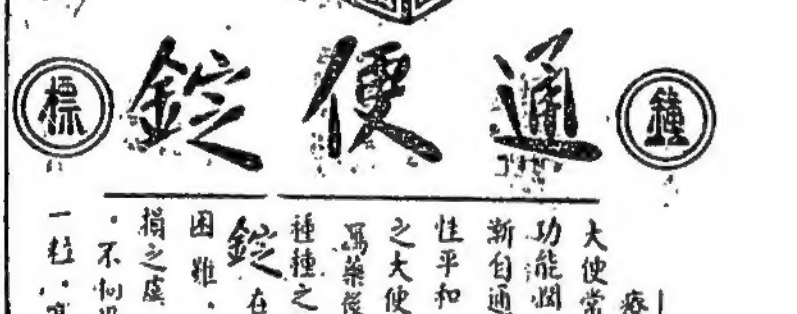 鐘標
通便錠
療
大便常
功能潤
漸自通
性平和
之大便
瀉藥後
種種之
錠在
困難．
損之虞
．不
一粒．